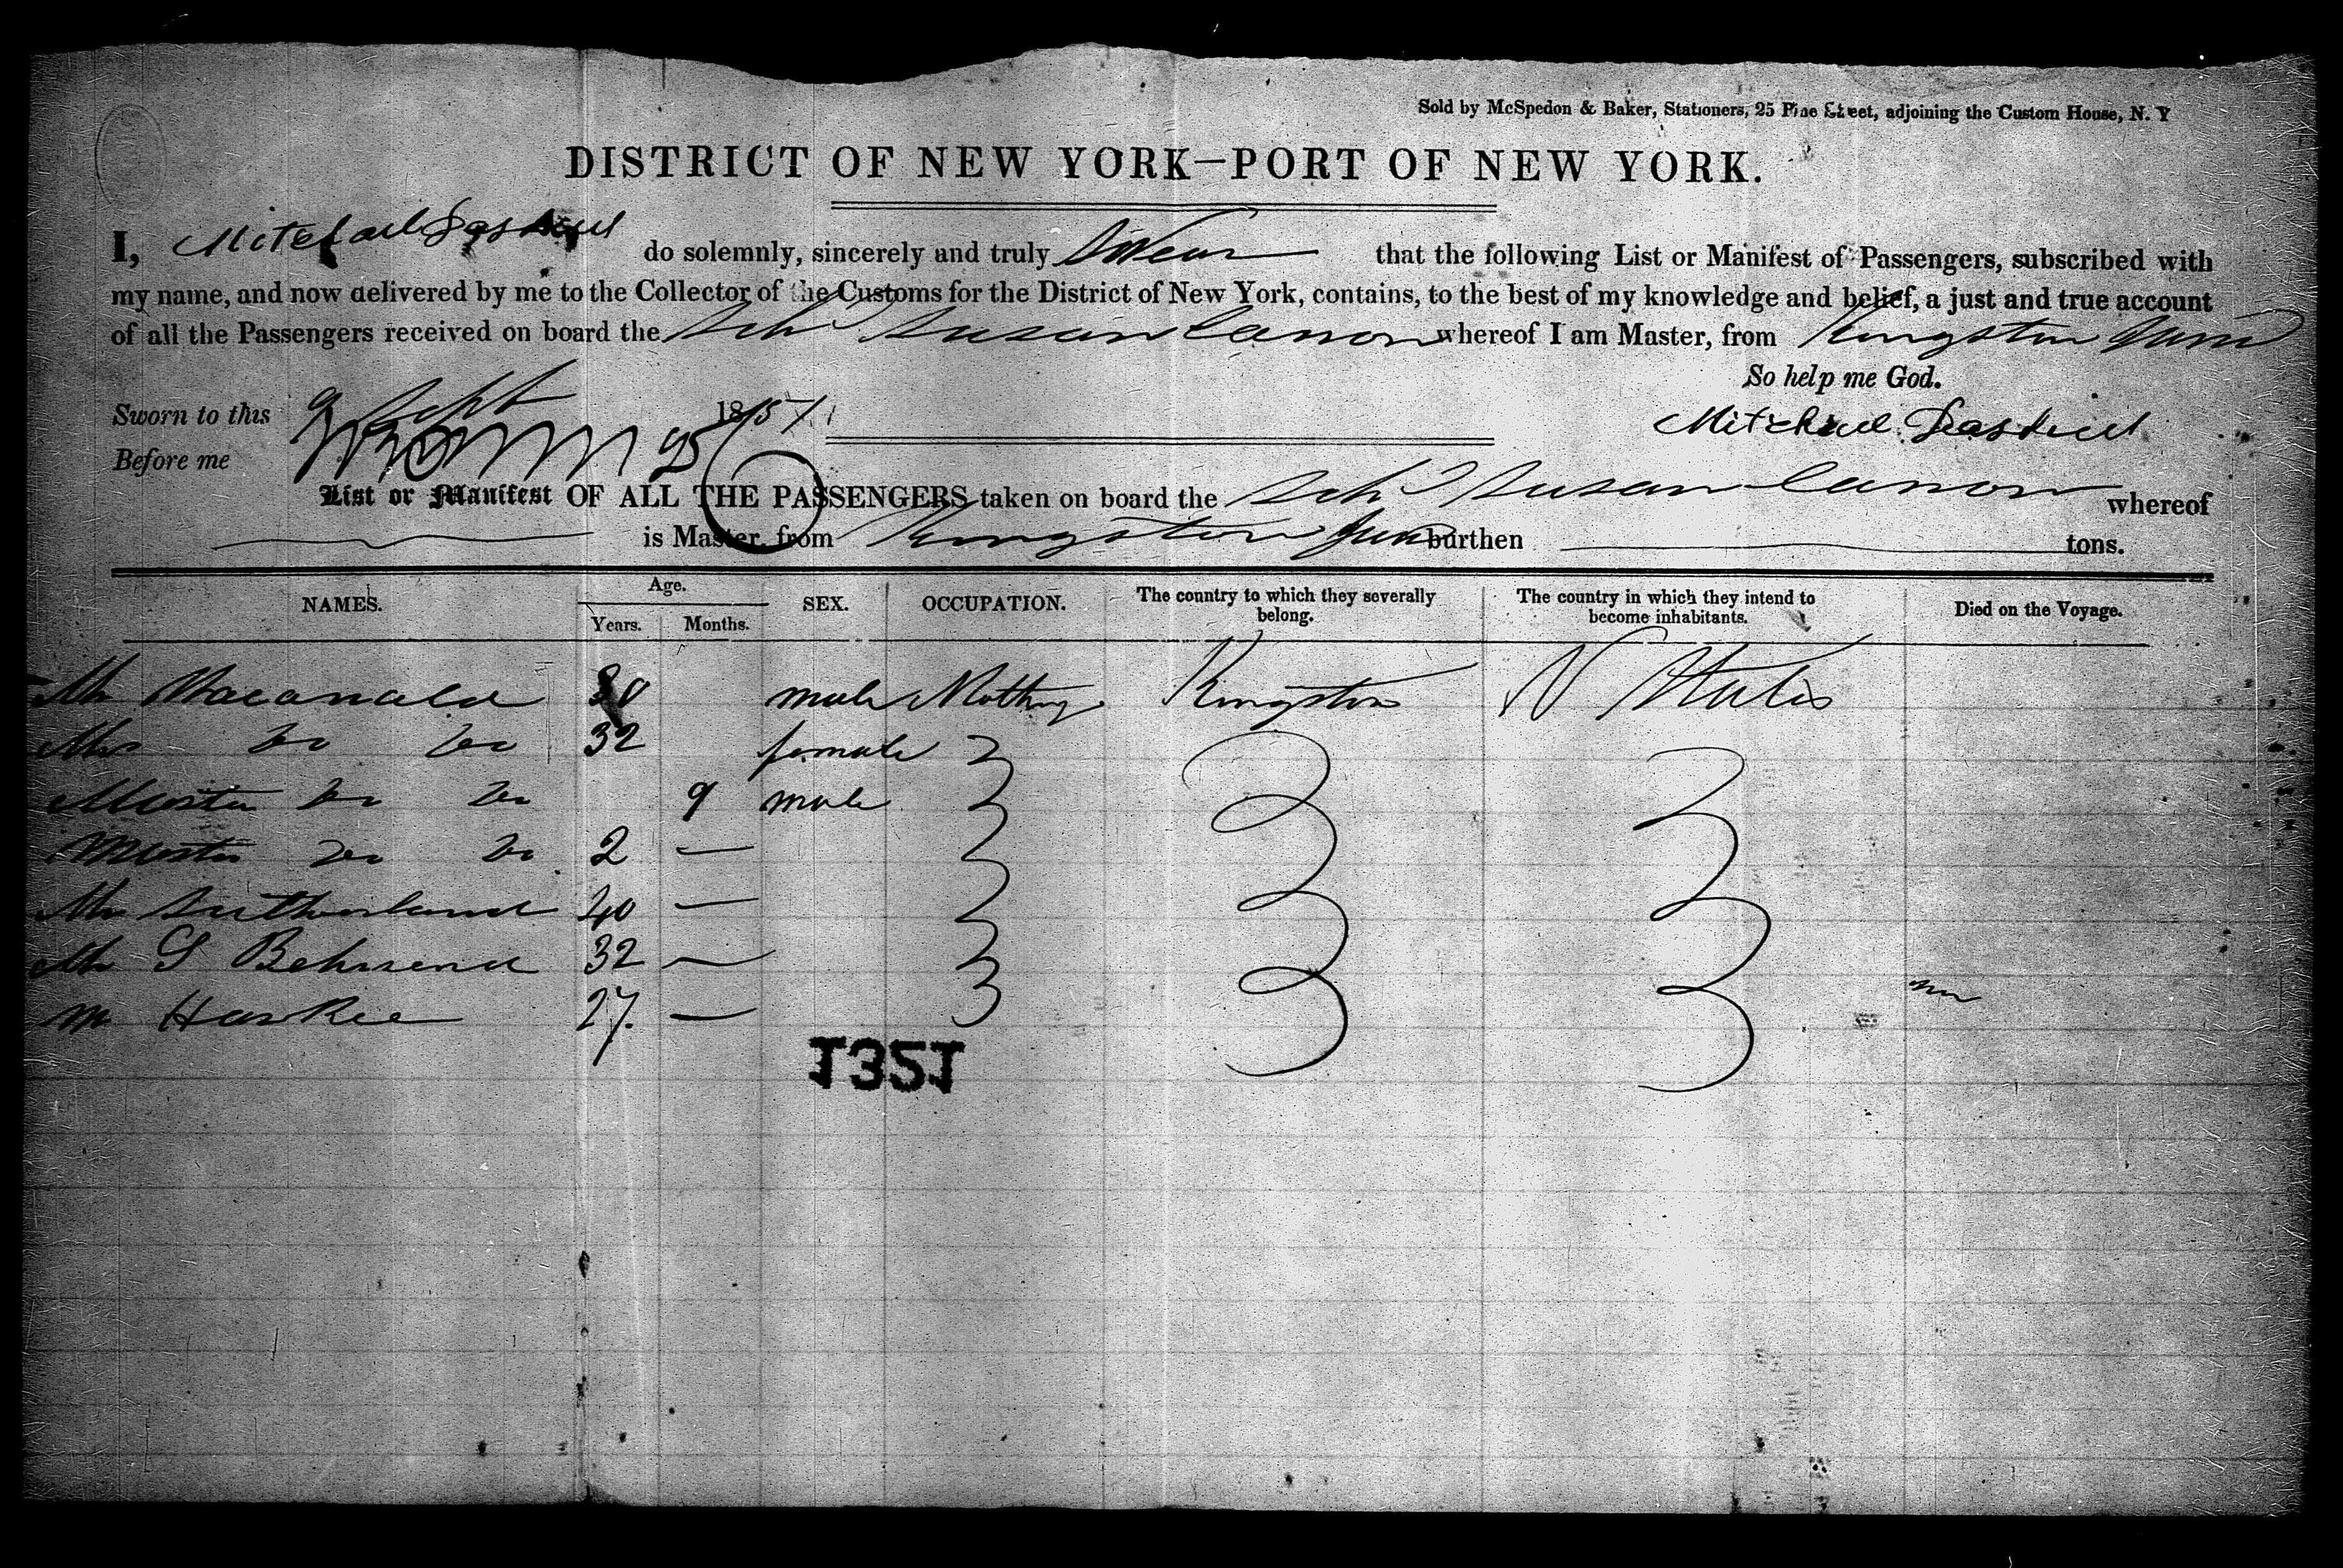 Sold by McSpedon & Baker, Stationers, 25 Pine Street, adjoining the Custom House, N. Y
DISTRICT OF NEW YORK—PORT OF NEW YORK.
I, Mitchael do solemnly, sincerely and truly Swear that the following List or Manifest of Passengers, subscribed with
my name, and now delivered by me to the Collector of the Customs for the District of New York, contains, to the best of my knowledge and belief, a just and true account
of all the Passengers received on board the Schr Susan Canon whereof I am Master, from Kingston Jam
So help me God.
Sworn to this 9 Sept 1851
Mitchael
Before me
List or Manifest OF ALL THE PASSENGERS taken on board the Schr Susan Canon whereof
is Master, from Kingston Jam burthen tons.
NAMES. Age. Years. Months. SEX. OCCUPATION. The country to which they severally belong. The country in which they intend to become inhabitants. Died on the Voyage.
Mr Macanald male Nothing Kingston N States
Mrs Do Do 32 female
Master Do Do 9 male
Master Do Do 2 —
Mr Sutherland 40 —
Mr S Behrend 32 —
M Haskee 27. —
1351